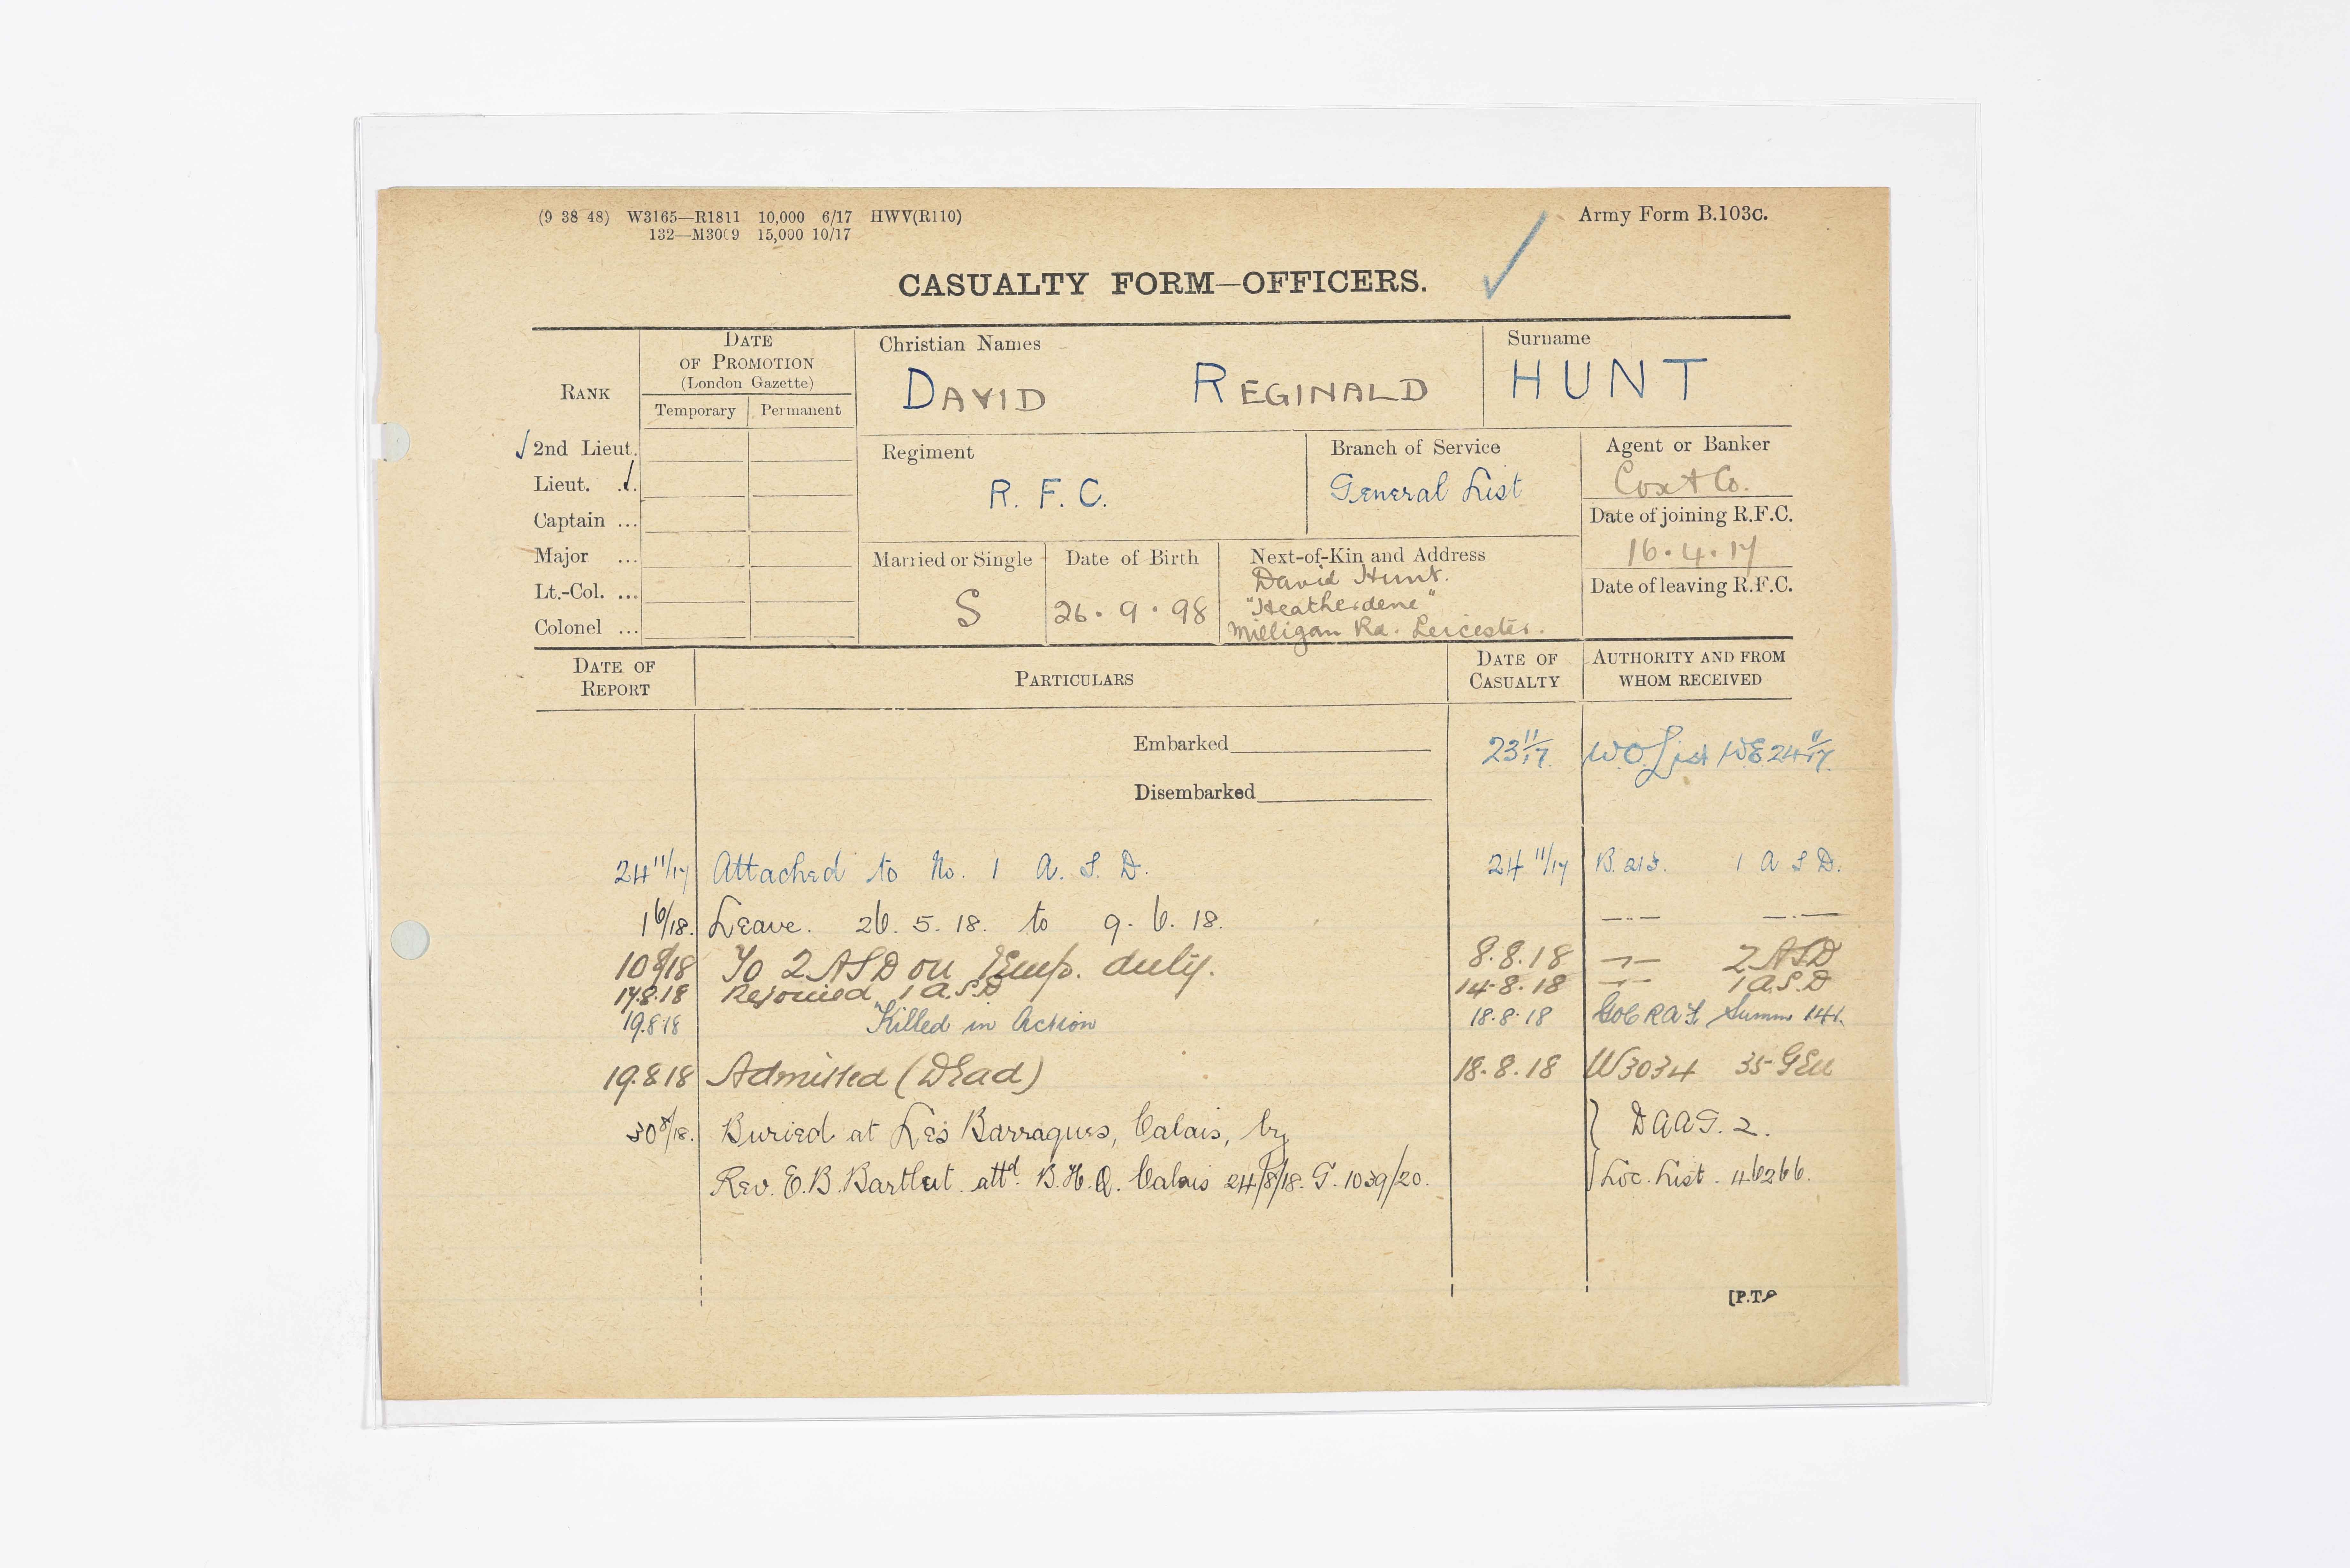 (9 38 48) W3165—R1811 10,000 6/17 HWV(R110)
132—M3009 15,000 10/17
Army Form B.103c.
CASUALTY FORM—OFFICERS.
RANK
DATE OF PROMOTION (London Gazette)
Temporary Permanent
Christian Names
DAVID REGINALD
Surname
HUNT
2nd Lieut.
Lieut. ..
Captain ...
Major ...
Lt.-Col. ...
Colonel ...
Regiment
R. F. C.
Branch of Service
General List
Agent or Banker
Cox & Co.
Date of joining R.F.C.
16.4.17
Date of leaving R.F.C.
Married or Single
S
Date of Birth
26.9.98
Next-of-Kin and Address
David Hunt.
"Heatherdene"
Milligan Rd. Leicester.
DATE OF REPORT PARTICULARS DATE OF CASUALTY AUTHORITY AND FROM WHOM RECEIVED
Embarked 23 11/17. W.O. List WE 24 11/17.
Disembarked
24 11/17 Attached to No. 1 A. S. D. 24 11/17 B. 213. 1 A S D.
1 6/18. Leave. 26. 5. 18. to 9. 6. 18. —.— —.—
10 8/18 To 2 ASD on Temp. duty. 8.8.18 —.— 2 ASD
17.8.18 Rejoined 1 A.S.D 14.8.18 —.— 1 A.S.D
19.8.18 Killed in Action 18.8.18 RAF Summ 141.
19.8.18 Admitted (Dead) 18.8.18 W3034 35 Gen
30 8/18. Buried at Les Barraques, Calais, by } D A A G. 2.
Rev. E. B. Bartleet attd. B. H. Q. Calais 24/8/18. G. 1039/20. Loc. List. 46266.
[P.T.O